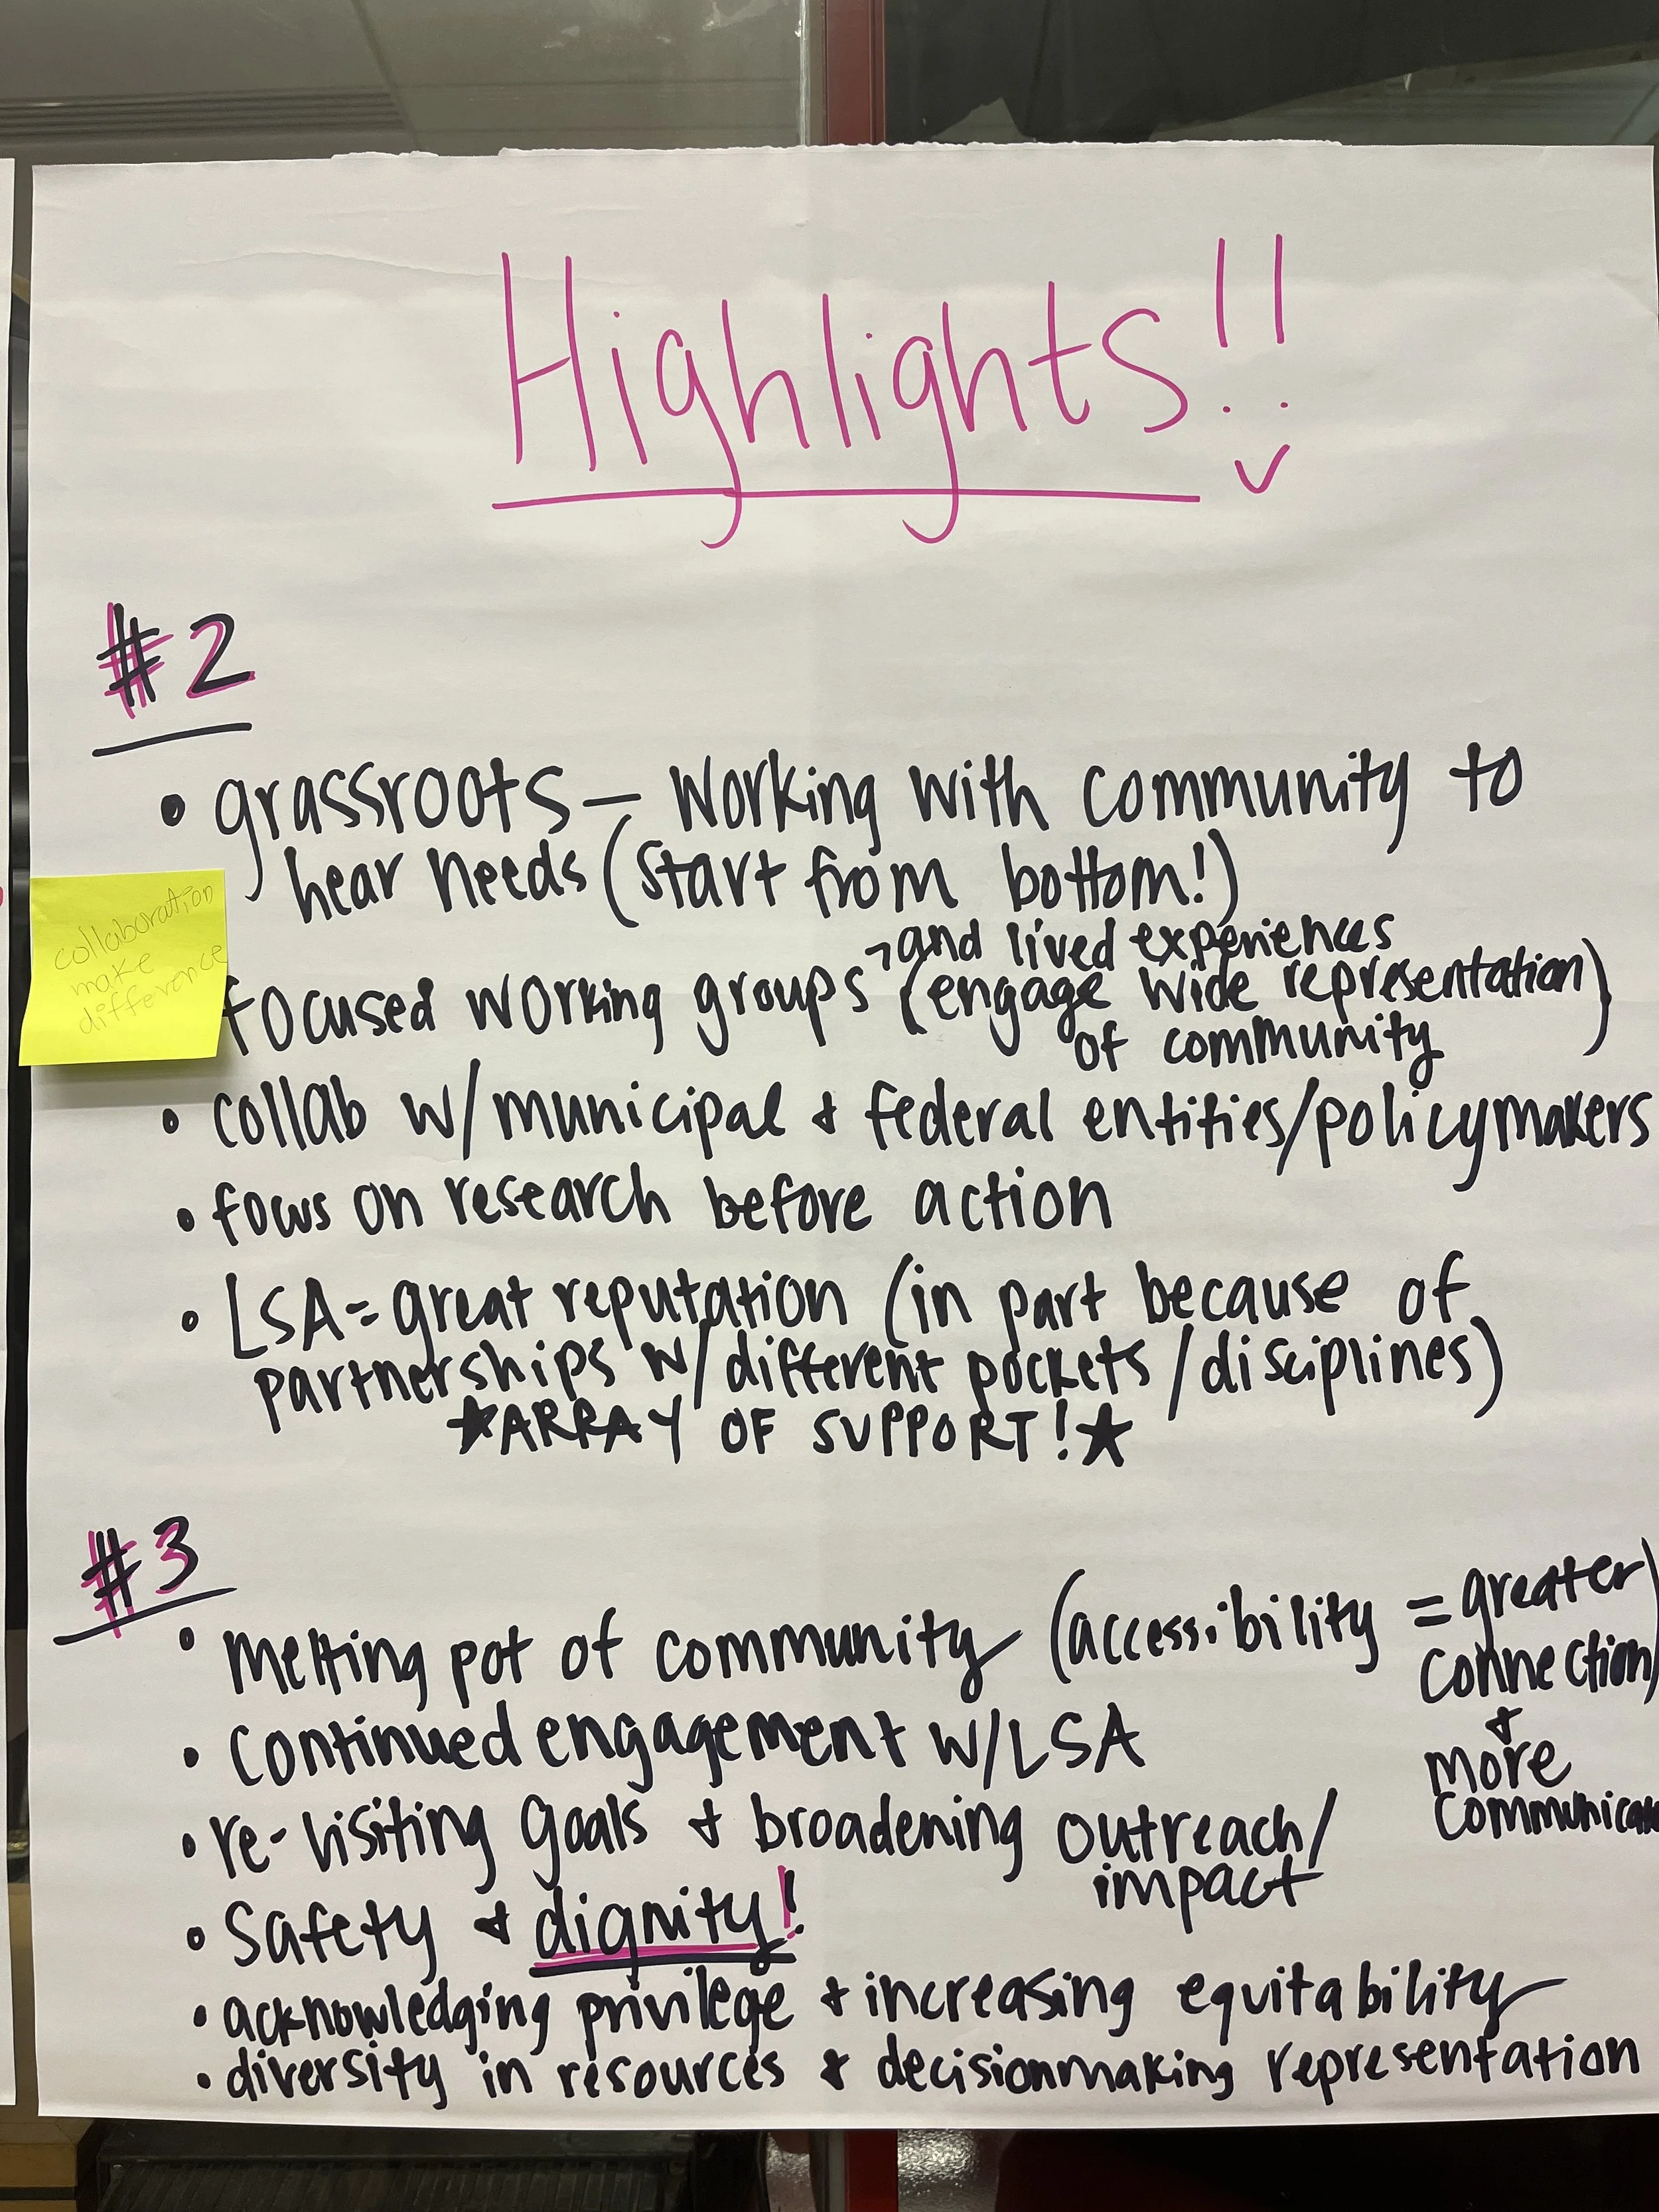 Highlights!!
#2
• grassroots — Working with community to
hear needs (start from bottom!)
and lived experiences
focused working groups (engage wide representation)
of community
collaboration
make
difference
• collab w/ municipal & federal entities/policymakers
• focus on research before action
• LSA = great reputation (in part because of
partnerships w/ different pockets/disciplines)
★ARRAY OF SUPPORT!★
#3
• Melting pot of community (accessibility = greater
connection)
&
more
• continued engagement w/LSA
• re-visiting goals & broadening outreach/
impact
• Safety & dignity!
• acknowledging privilege & increasing equitability
• diversity in resources & decisionmaking representation